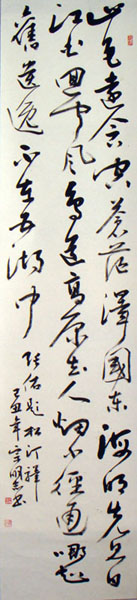 山色遠含空蒼茫澤國東海明先見日
江白迥聞風鳥道高原去人烟小徑通那知
舊遺逸不在五湖中 張祜題松汀驛
丑年